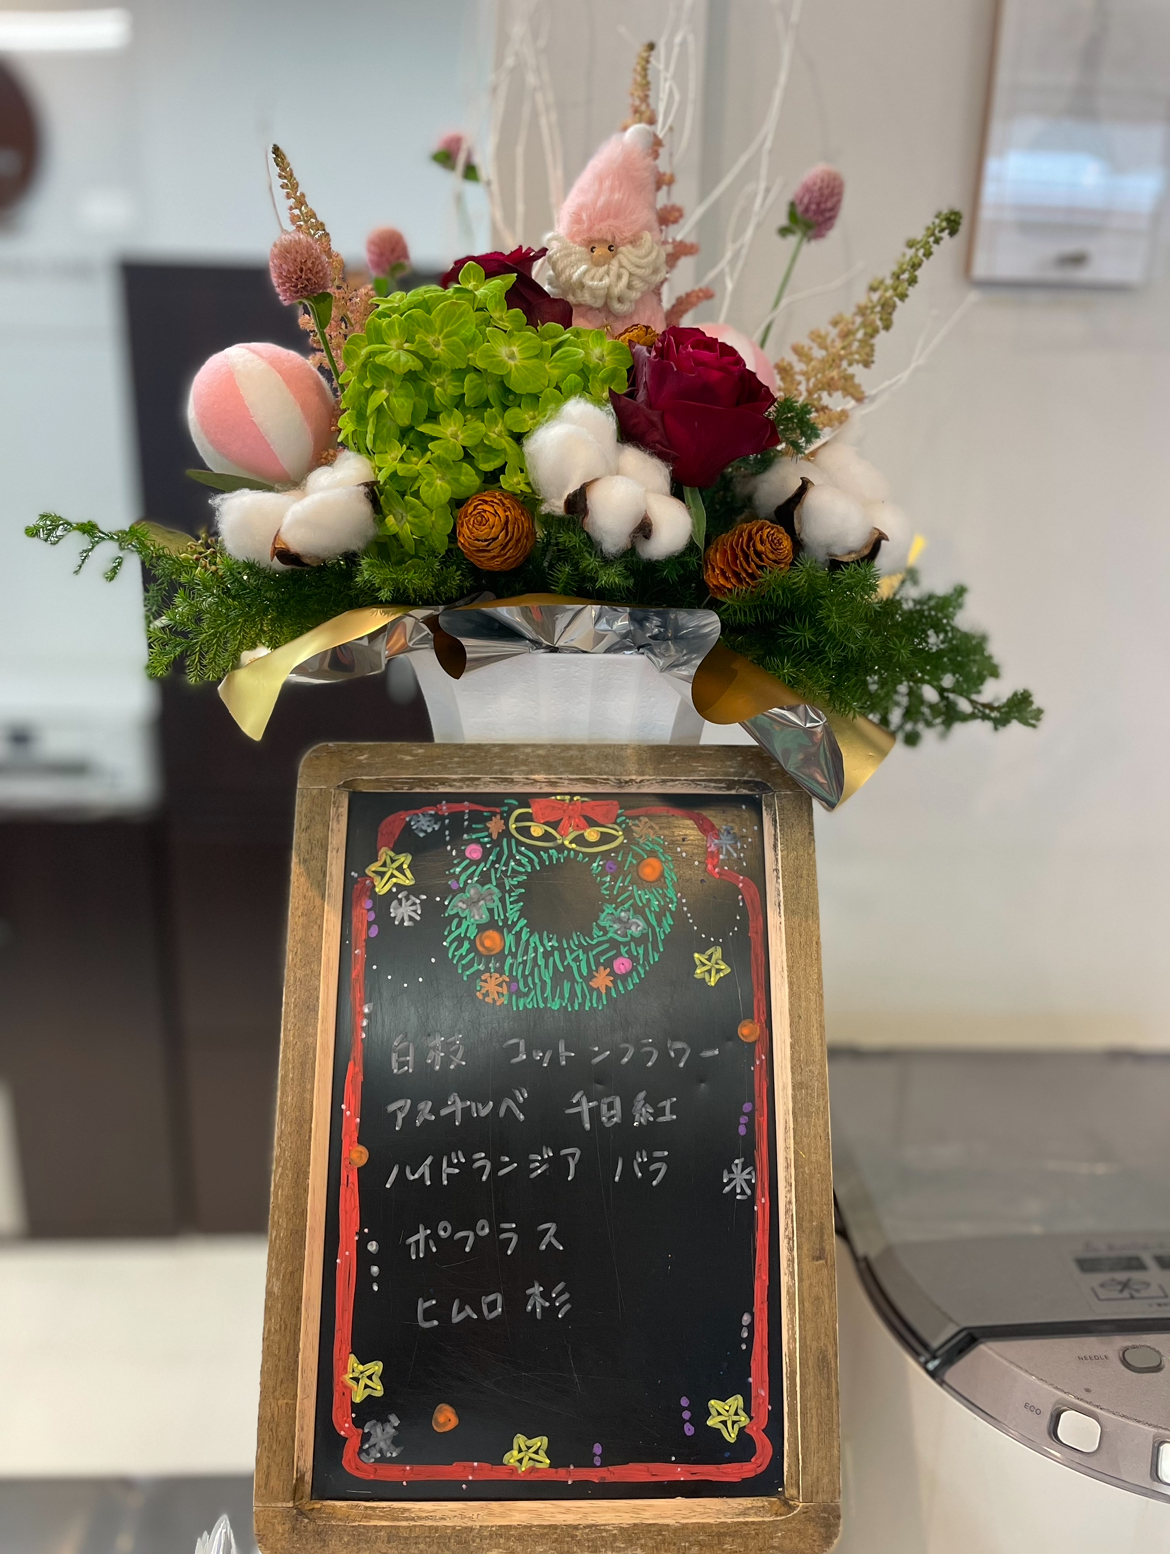 白枝 コットンフラワー
アスチルベ 千日紅
ハイドランジア バラ
ポプラス
ヒムロ杉
NEEDLE
ECO